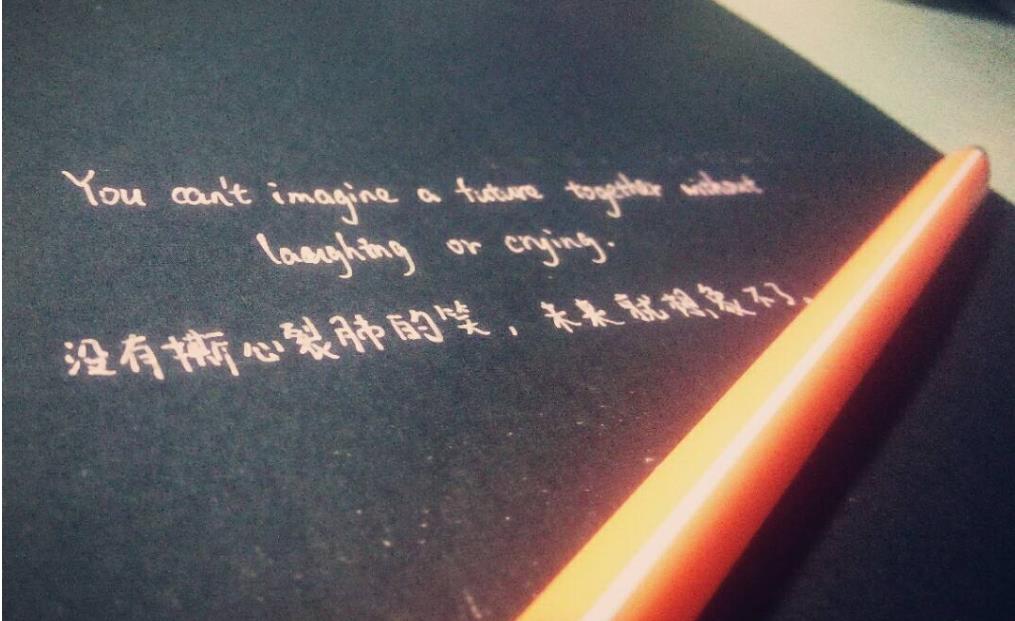 You can't imagine a future together without
laughing or crying.
没有撕心裂肺的笑，未来就想象不了。